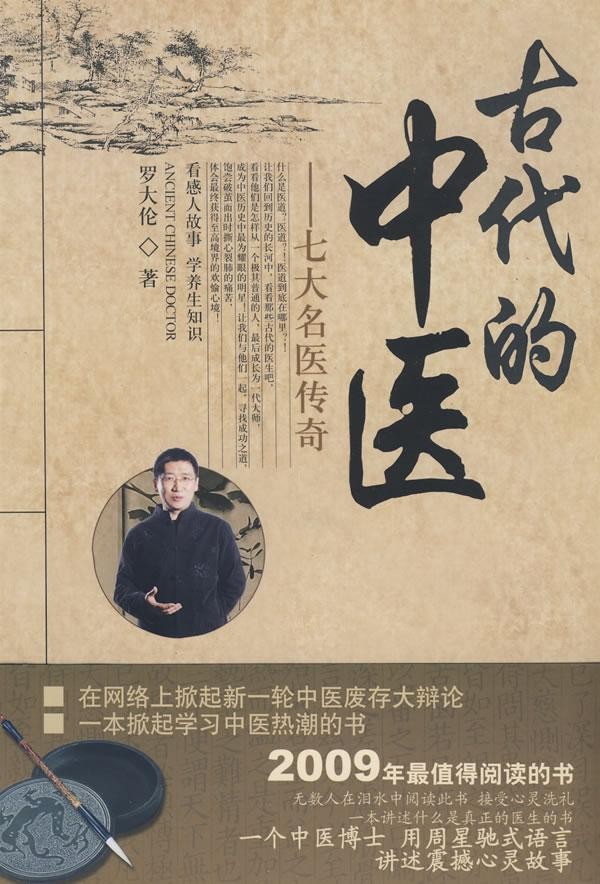 古代的
中医
——七大名医传奇
什么是医道？医道？！医道到底在哪里？！
让我们回到历史的长河中，看看那些古代的医生吧，
看看他们是怎样从一个极其普通的人，最后成长为一代大师，
成为中医历史中最为耀眼的明星！让我们与他们一起，寻找成功之道，
饱尝破茧而出时撕心裂肺的痛苦，
体会最终获得至高境界的欢愉心境！
看感人故事 学养生知识
ANCIENT CHINESE DOCTOR
罗大伦◇著
■ 在网络上掀起新一轮中医废存大辩论
■ 一本掀起学习中医热潮的书
2009年最值得阅读的书
无数人在泪水中阅读此书 接受心灵洗礼
一本讲述什么是真正的医生的书
一个中医博士 用周星驰式语言
讲述震撼心灵故事